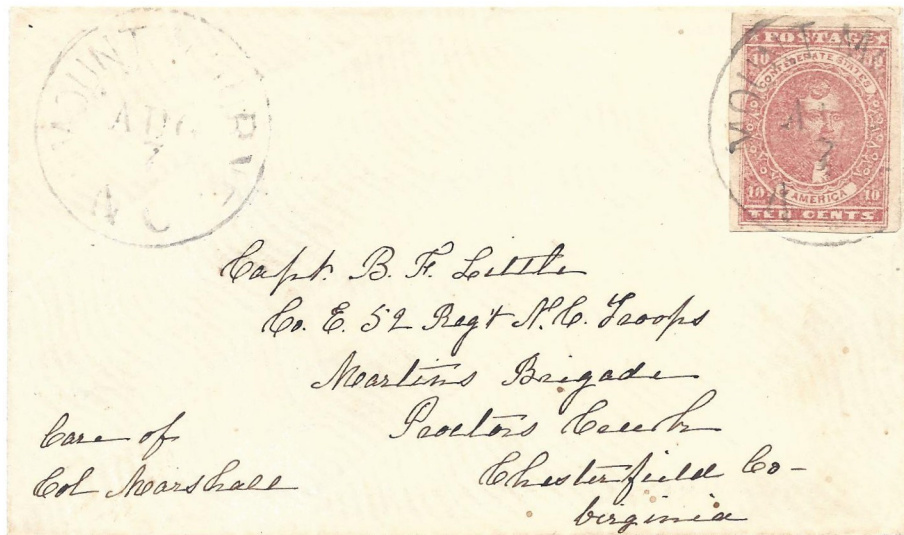 MOUNT
AUG
7
N C
POSTAGE
10 10
CONFEDERATE STATES
AMERICA
10 10
TEN CENTS
MOUNT
7
N
Capt. B. F. Little
Co. E. 52 Reg't N. C. Troops
Martins Brigade
Proctors Creek
Chesterfield Co-
Virginia
Care of
Col Marshall